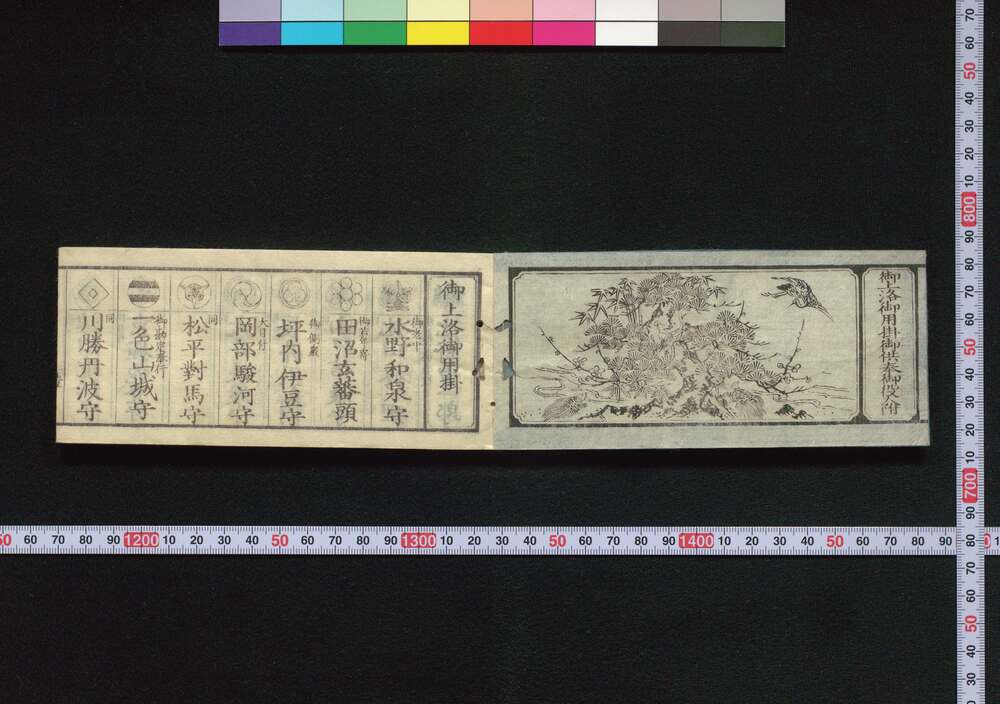 御上洛御用掛御供奉御役附
御上洛御用掛
御老中
水野和泉守
御若年寄
田沼玄蕃頭
御側衆
坪内伊豆守
大目付
岡部駿河守
同
松平對馬守
御勘定奉行
一色山城守
同
川勝丹波守
70
60
50
40
30
20
10
800
90
80
70
60
50
40
30
20
10
700
90
80
70
60
50
40
30
50 60 70 80 90 1200 10 20 30 40 50 60 70 80 90 1300 10 20 30 40 50 60 70 80 90 1400 10 20 30 40 50 60 70 80 90